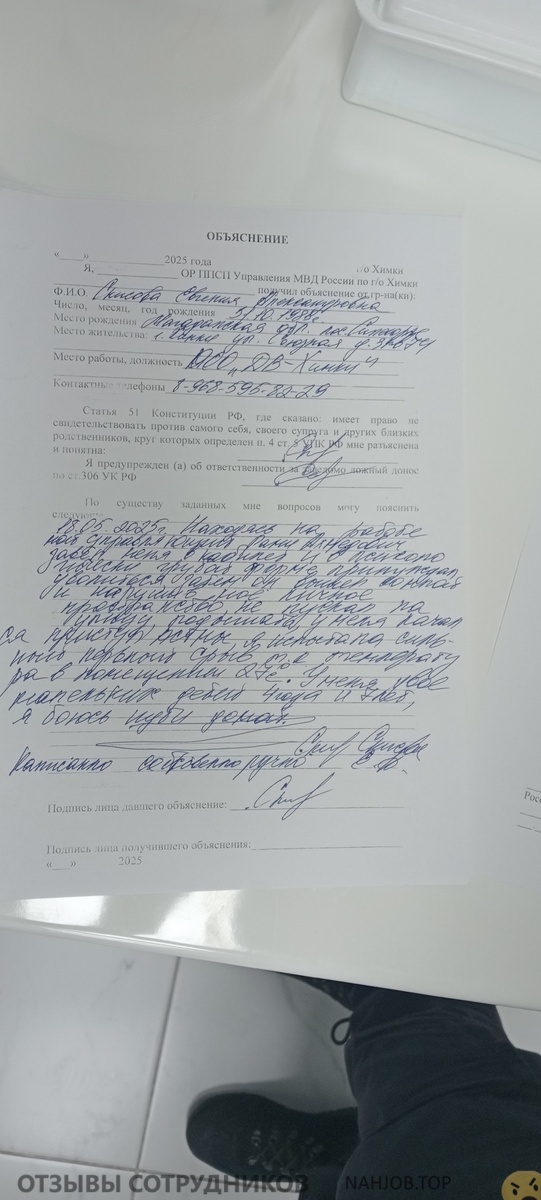 ОБЪЯСНЕНИЕ
«___»____________2025 года г/о Химки
Я, ____________ ОР ППСП Управления МВД России по г/о Химки
____________ получил объяснение от гр-на(ки):
Ф.И.О. Евгения Александровна
Число, месяц, год рождения
Место рождения Магаданская обл. пос.
Место жительства: г. Химки ул. Союзная д.
Место работы, должность „ДВ-Химки"
Контактные телефоны 8-968-595-82-29
Статья 51 Конституции РФ, где сказано: имеет право не
свидетельствовать против самого себя, своего супруга и других близких
родственников, круг которых определен п. 4 ст. 5 УПК РФ мне разъяснена
и понятна:
Я предупрежден (а) об ответственности за заведомо ложный донос
по ст.306 УК РФ
По существу заданных мне вопросов могу пояснить
следующее
18.05.2025г. Находясь на работе
меня в кабинет и психоло
гически грубой форме принуждал
уволиться затем он
и нарушив мое личное
пространство, не пускал на
улицу подышать, у меня начал
ся приступ астмы, я испытала силь-
ный нервный срыв т.к температу
ра в помещении 27с°. У меня двое
маленьких детей 4года и 7лет,
я боюсь идти домой.
Написанно собственноручно
Подпись лица давшего объяснение:
Подпись лица получившего объяснения:
«___» ______ 2025
Рос
ОТЗЫВЫ СОТРУДНИКОВ NAHJOB.TOP